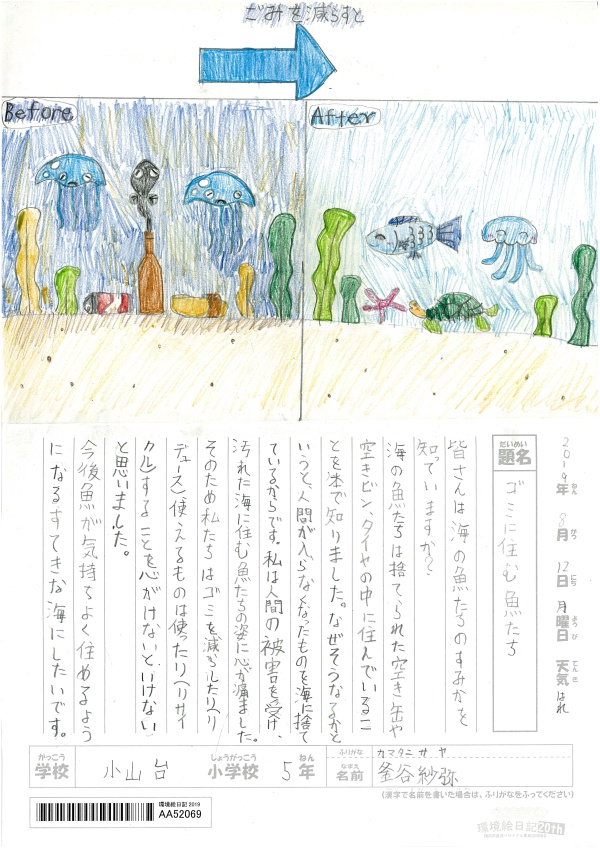 ごみを減らすと
Before
After
2019年 8月 12日 月曜日 天気 はれ
ねん がつ にち ようび てんき
だいめい
題名
ゴミに住む魚たち
皆さんは海の魚たちのすみかを
知っていますか?
海の魚たちは捨てられた空き缶や
空きビン、タイヤの中に住んでいるこ
とを本で知りました。なぜそうなるかと
いうと、人間が入らなくなったものを海に捨て
ているからです。私は人間の被害を受け、
汚れた海に住む魚たちの姿に心が痛ました。
そのため私たちはゴミを減らしたり(リ
デュース)使えるものは使ったり(リサイ
クル)することを心がけないといけない
と思いました。
今後魚が気持ちよく住めるよう
になるすてきな海にしたいです。
がっこう
学校
小山台
しょうがっこう
小学校
5
ねん
年
ふりがな
カマタニ サヤ
なまえ
名前
釜谷紗弥
(漢字で名前を書いた場合は、ふりがなをふってください)
環境絵日記 2019
AA52069
環境絵日記 20th